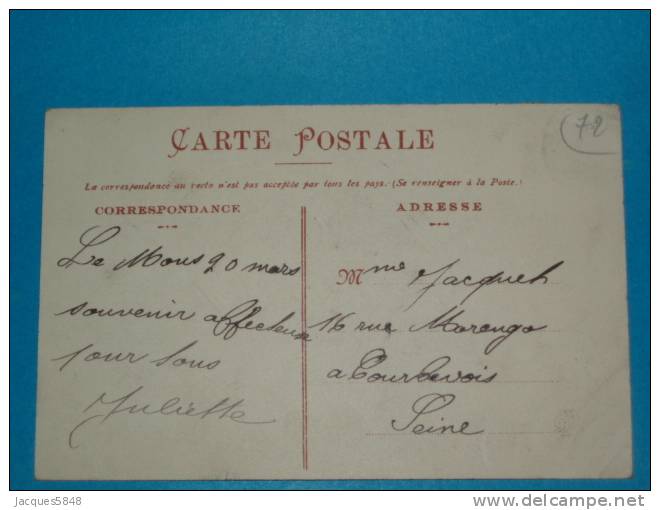 72
CARTE POSTALE
La correspondance au recto n'est pas acceptée par tous les pays. (Se renseigner à la Poste.)
CORRESPONDANCE
Le Mans 20 mars
souvenir affectueux
pour tous
Juliette
ADRESSE
Mme Jacquet
16 rue Marengo
a Courbevois
Seine
Jacques5848
delcampe.net